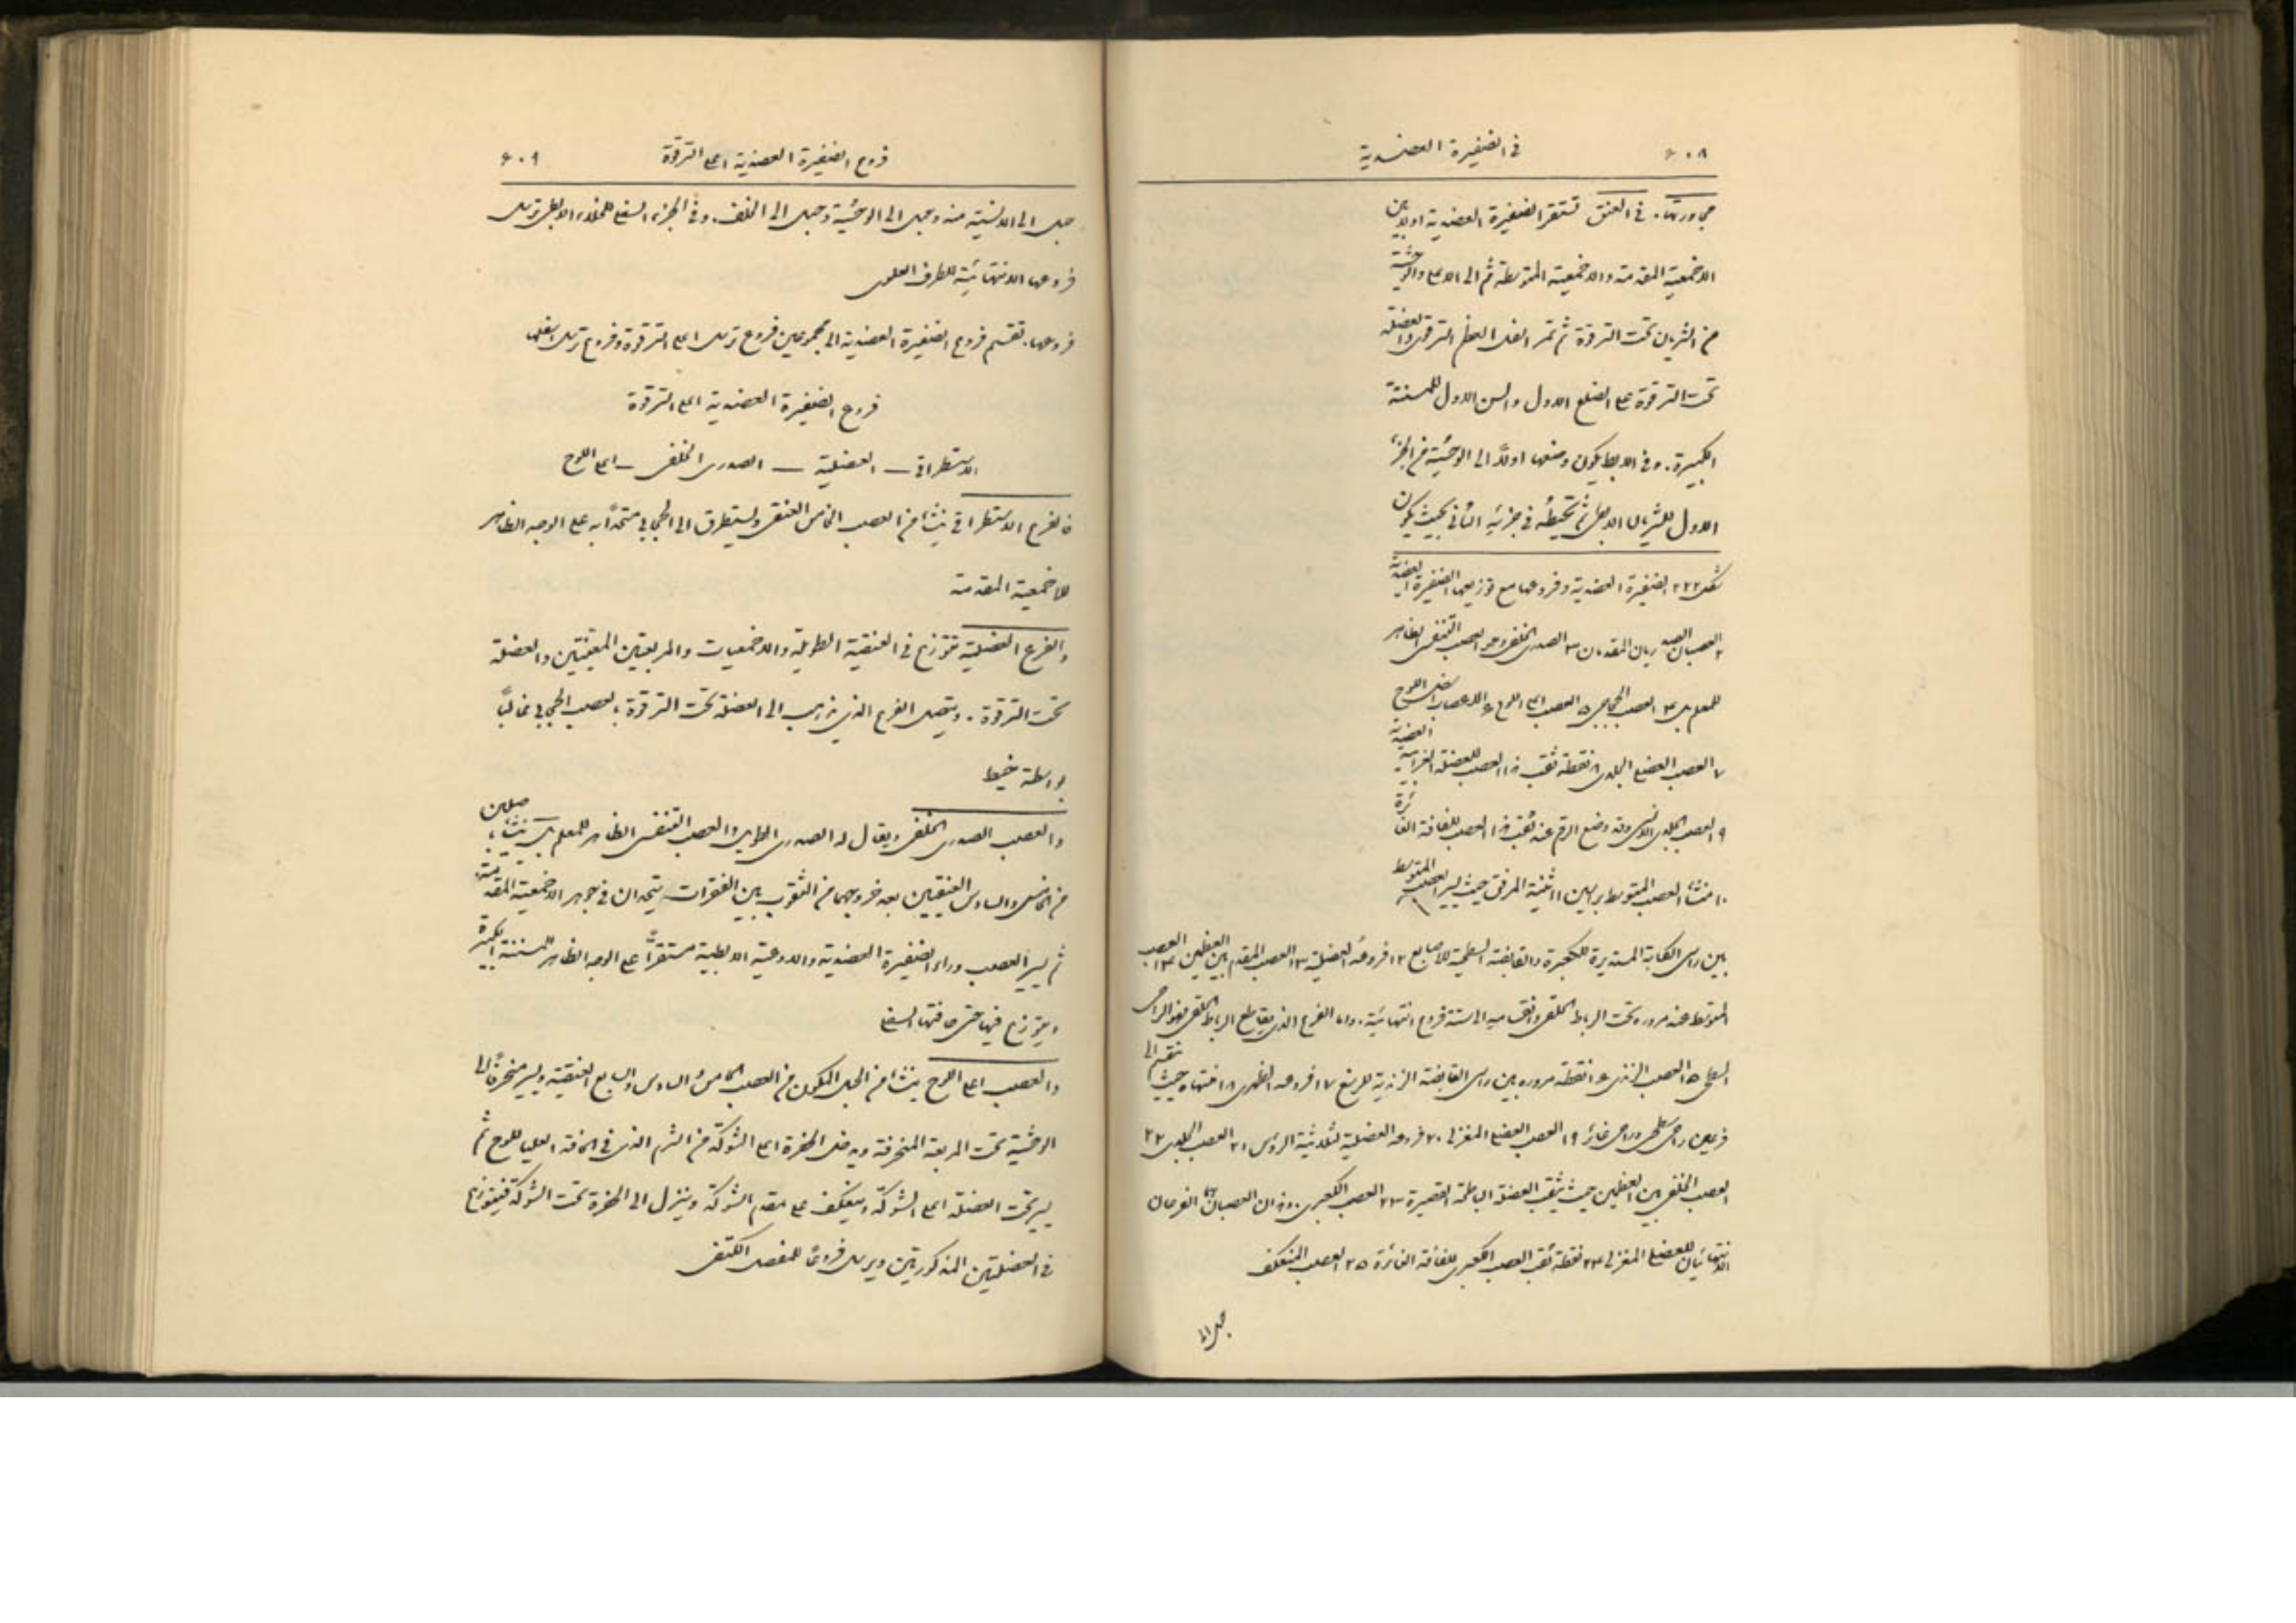 ٦٠٨ في الضفيرة العضدية
مجاورتها. في العنق تستقر الضفيرة العضدية اولا بين
الاخمعية المقدمة والاخمعية المتوسطة ثم الى الاعلى والوحشية
من الشريان تحت الترقوة ثم تمر خلف العظم الترقوي والعضلة
تحت الترقوة على الضلع الاول والسن الاول للمسننة
الكبيرة. وفي الابط يكون وضعها اولاً الى الوحشية من الجزء
الاول للشريان الابطي ثم تحيطه في جزئه الثاني بحيث يكون
شكل ٢٢٢ الضفيرة العضدية وفروعها مع توزيعها ١ الضفيرة العضدية
٢ العصبان الصدريان المقدمان ٣ الصدري الخلفي وهو العصب التنفسي الظاهر
للمعلم بل ٤ العصب الحجابي ٥ العصب اعلى اللوح ٦ الاعصاب اسفل اللوح
٧ العصب العضلي الجلدي ٨ نقطة ثقب هذا العصب للعضلة الغرابية العضدية
٩ العصب الجلدي الانسي وقد وضع الرقم عند ثقب هذا العصب للفافة الغائرة
١٠ منشأ العصب المتوسط براسين ١١ ثنية المرفق حيث يسير العصب المتوسط
بين راسي الكابة المستديرة للكعبرة والقابضة السطحية للاصابع ١٢ فروعه العضلية ١٣ العصب المقدم بين العظمين ١٤ العصب
المتوسط عند مروره تحت الرباط الحلقي وانقسامه الى ستة فروع انتهائية. واما الفرع الذي يقاطع الرباط الحلقي فهو الراحي
السطحي ١٥ العصب الزندي ١٦ نقطة مروره بين راسي القابضة الزندية للرسغ ١٧ فرعه الظهري ١٨ انتهاؤه حيث ينقسم الى
فرعين راحي سطحي وراحي غائر ١٩ العصب العضلي المغزلي ٢٠ فروعه العضلية لثلاثية الرؤس ٢١ العصب الجلدي ٢٢
العصب الخلفي بين العظمين حيث يثقب العضلة الباطحة القصيرة ٢٣ العصب الكعبري. وهذان العصبان هما الفرعان
الانتهائيان للعضلي المغزلي ٢٤ نقطة ثقب العصب الكعبري للفافة الغائرة ٢٥ العصب المنعكف
حبل الى
فروع الضفيرة العضدية اعلى الترقوة ٦٠٩
حبل الى الانسية منه وحبل الى الوحشية وحبل الى الخلف. وفي الجزء السفلي للخلاء الابطي ترسل
فروعها الانتهائية للطرف العلوي
فروعها. تقسم فروع الضفيرة العضدية الى مجموعين فروع ترسل اعلى الترقوة وفروع ترسل اسفلها
فروع الضفيرة العضدية اعلى الترقوة
الاستطراقي — العضلية — الصدري الخلفي — اعلى اللوح
فالفرع الاستطراقي ينشأ من العصب الخامس العنقي ويستطرق الى الحجابي متحداً به على الوجه الظاهر
للاخمعية المقدمة
والفرع العضلية تتوزع في العنقية الطويلة والاخمعيات والمربعتين المعينتين والعضلة
تحت الترقوة. ويتصل الفرع الذي يذهب الى العضلة تحت الترقوة بالعصب الحجابي غالباً
بواسطة خيط
والعصب الصدري الخلفي ويقال له الصدري الطويل والعصب التنفسي الظاهر للمعلم بل ينشأ باصلين
من الخامس والسادس العنقيين بعد خروجهما من الثقوب بين الفقرات يتحدان في جوهر الاخمعية المقدمة
ثم يسير العصب وراء الضفيرة العضدية والاوعية الابطية مستقراً على الوجه الظاهر للمسننة الكبيرة
ويتوزع فيها حتى حافتها السفلى
والعصب اعلى اللوح ينشأ من الحبل المكون من العصب الخامس والسادس والسابع العنقية ويسير منحرفاً الى
الوحشية تحت المربعة المنحرفة ويدخل الحفرة اعلى الشوكة من الشرم الذي في الحافة العليا للوح ثم
يسير تحت العضلة اعلى الشوكة وينعكف على مقدم الشوكة وينزل الى الحفرة تحت الشوكة فيتوزع
في العضلتين المذكورتين ويرسل فروعاً للمفصل الكتفي